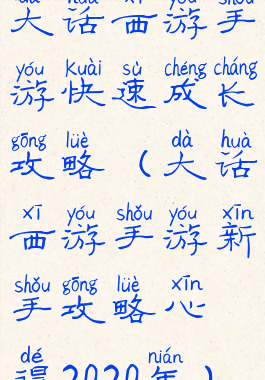 dà huà xī yóu shǒu
大话西游手
yóu kuài sù chéng cháng
游快速成长
gōng lüè dà huà
攻略（大话
xī yóu shǒu yóu xīn
西游手游新
shǒu gōng lüè xīn
手攻略心
dé nián
得2020年）